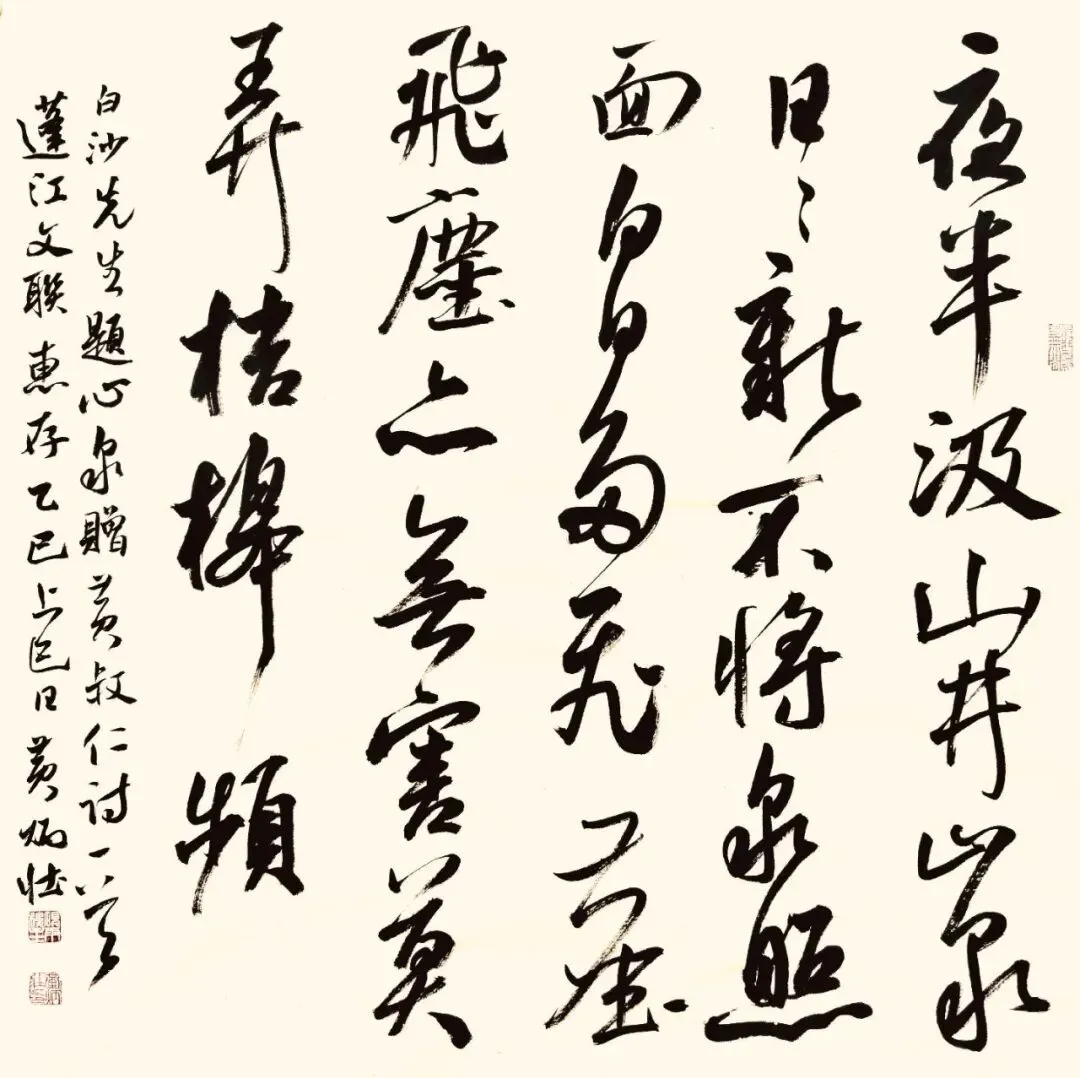 夜半汲山井山泉
日〻新不將泉照
面白日多飛塵
飛塵亦無害莫
弄桔槔頻
白沙先生題心泉贈黃叔仁詩一首
蓬江文聯惠存乙巳上巳日黃炳